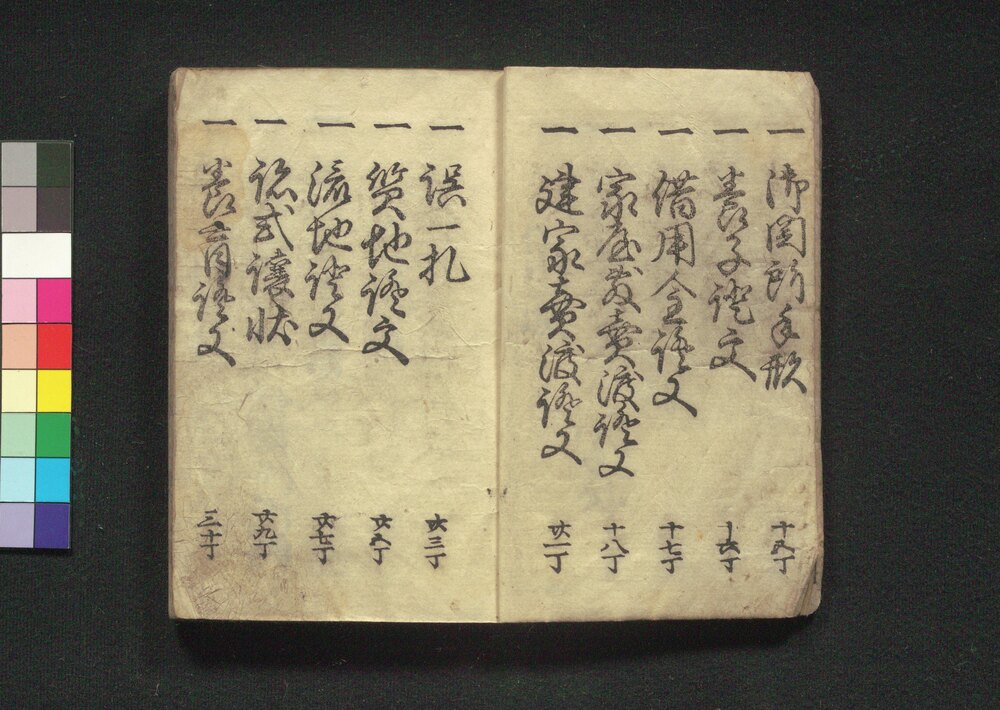 一 御関所手形 十五丁
一 養子證文 十六丁
一 借用金證文 十七丁
一 家屋敷賣渡證文 十八丁
一 建家賣渡證文 廿一丁
一 誤一札 廿三丁
一 質地證文 廿五丁
一 流地證文 廿七丁
一 譲状 廿九丁
一 養育證文 三十丁